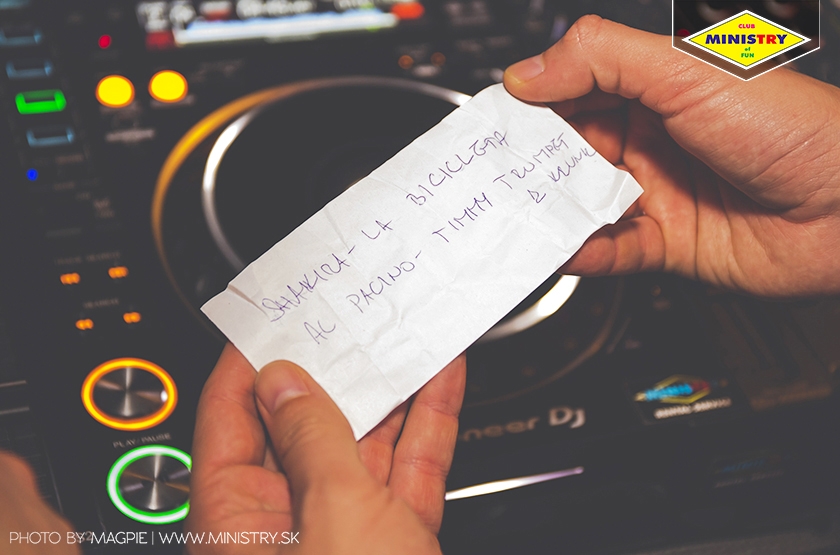 CLUB
MINISTRY
of
FUN
SHAKIRA - LA BICICLETA
AL PACINO - TIMMY TRUMPET
& KRUNK
PLAY/PAUSE
Pioneer Dj
PHOTO BY MAGPIE | WWW.MINISTRY.SK